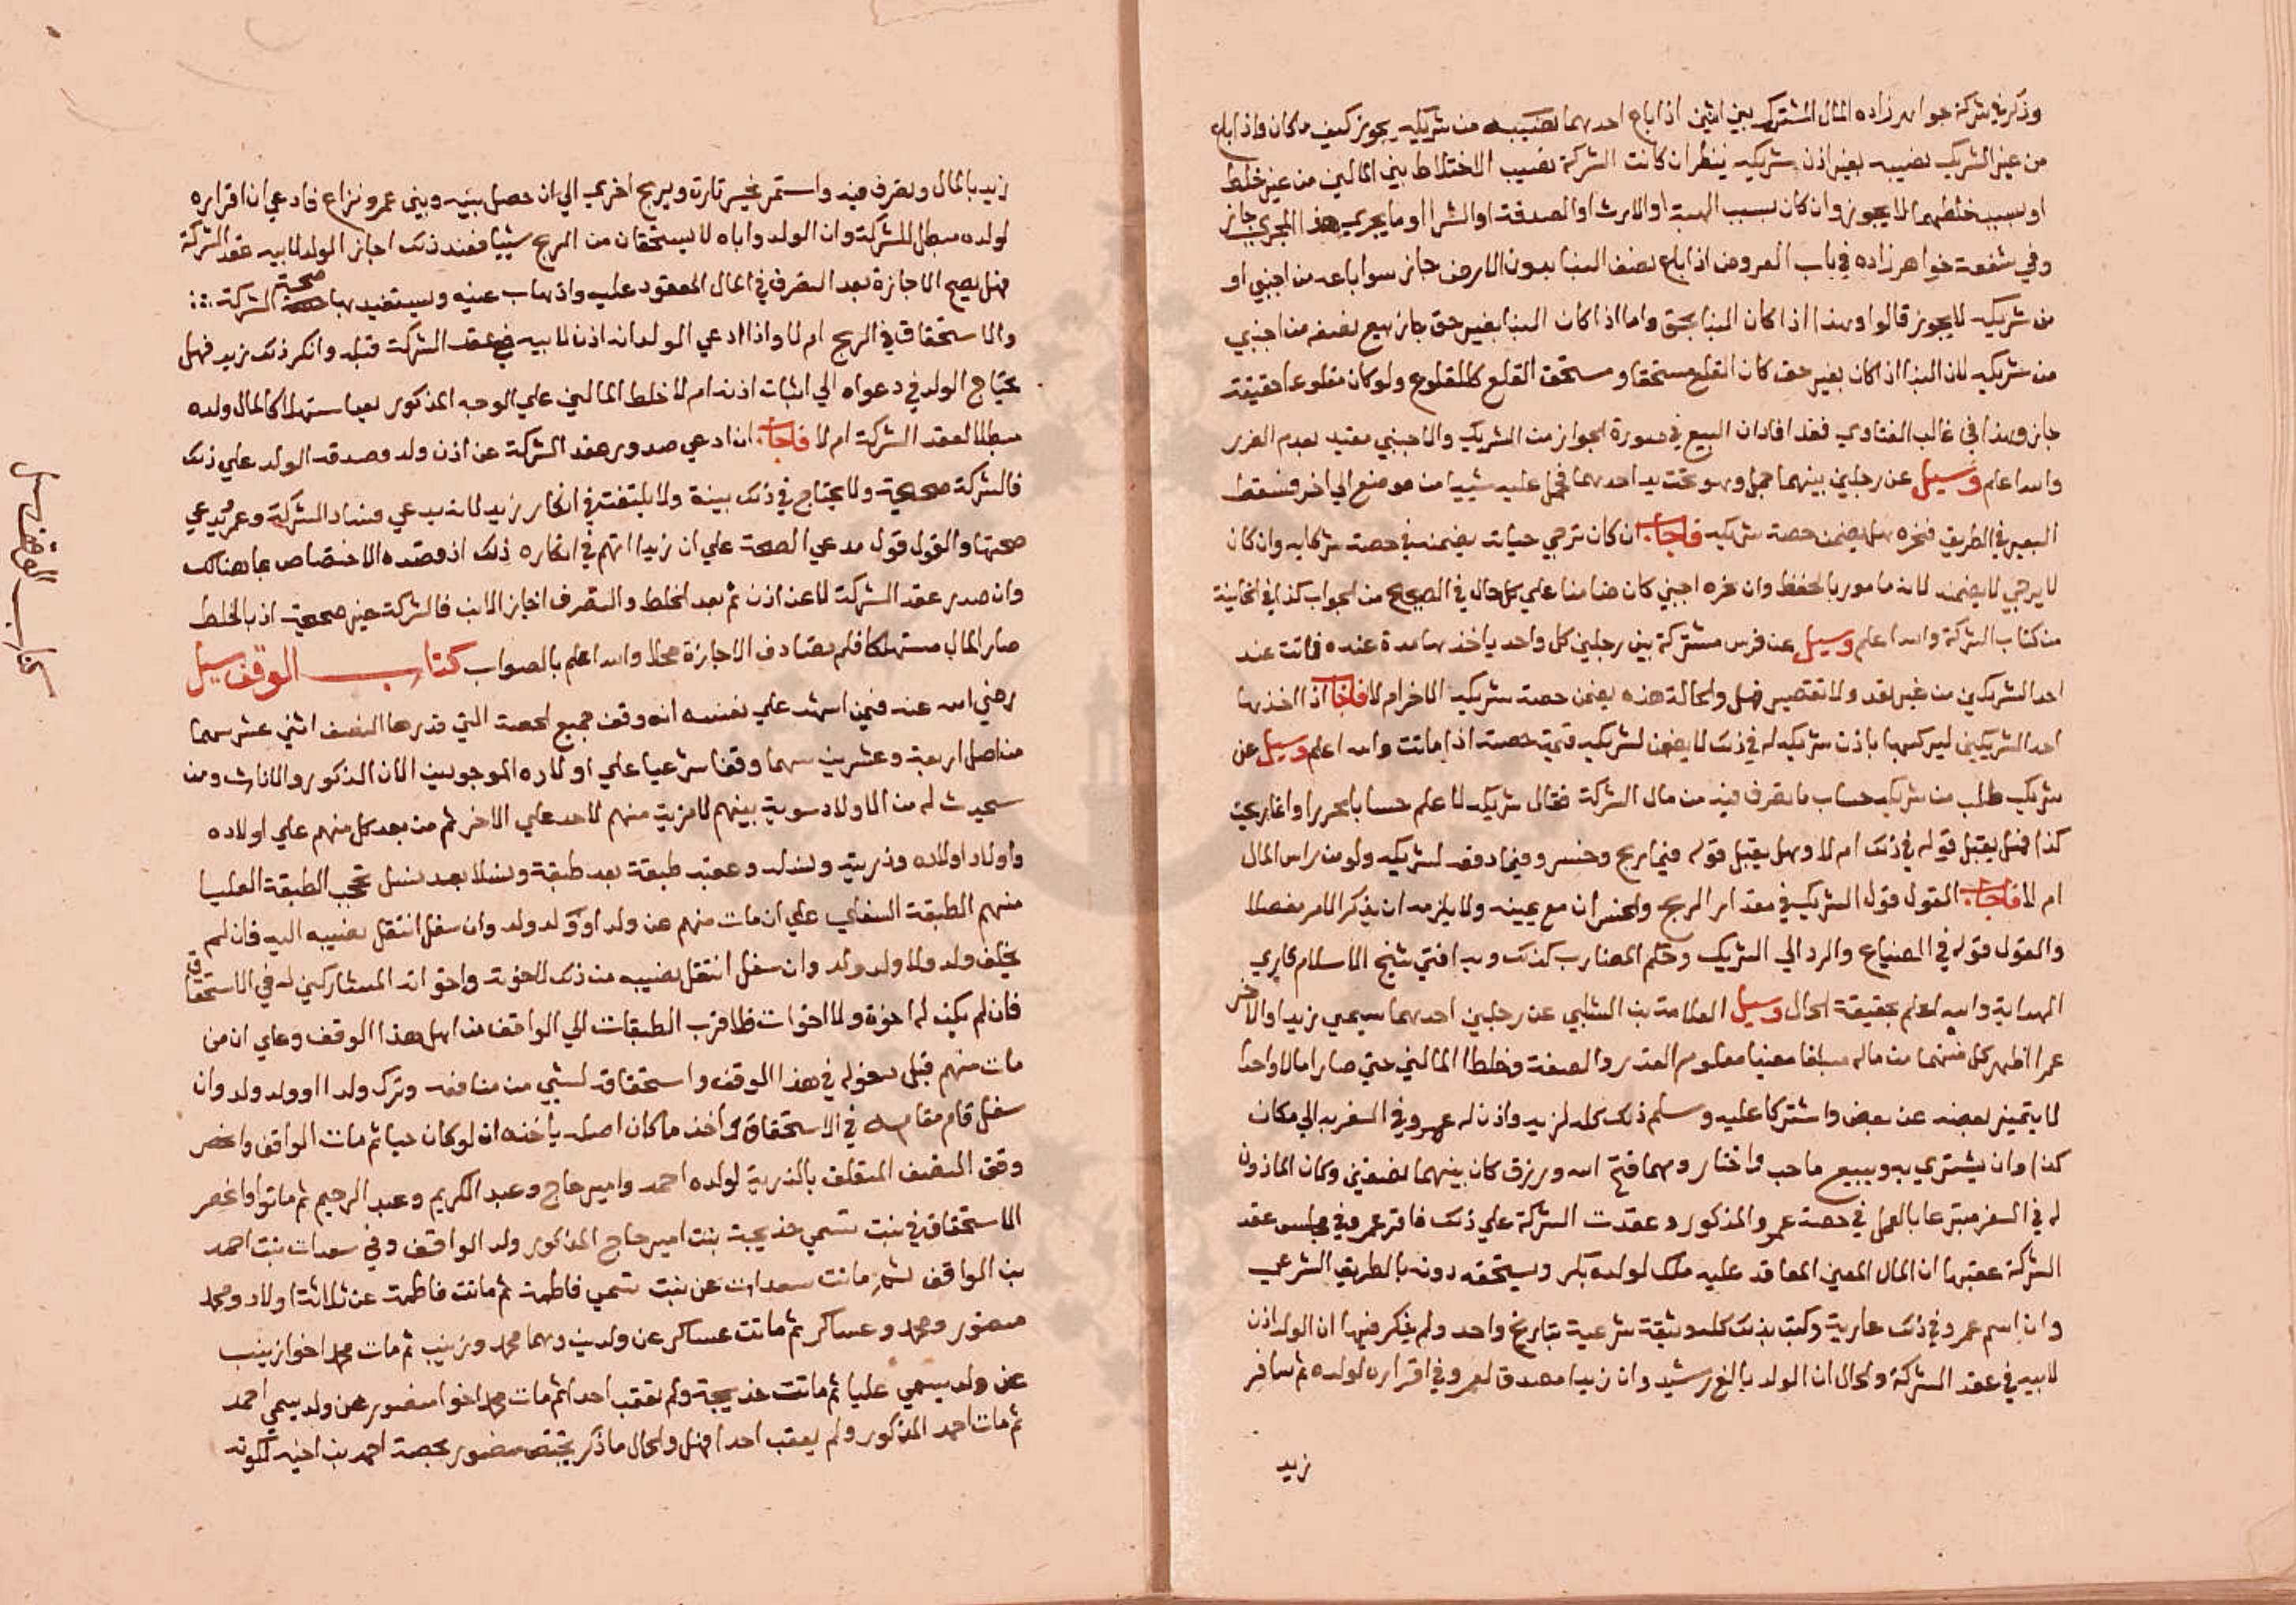 وذكر في شركة خواهر زاده المال المشترك بين اثنين اذا باع احدهما نصيبه من شريكه يجوز كيف ما كان واذا باع
من غير الشريك نصيبه بغير اذن شريكه ينظر ان كانت الشركة بسبب الاختلاط بين المالين من غير خلط
او بسبب خلطهما لا يجوز وان كان بسبب الهبة او الارث او الصدقة او الشرا او ما يجري هذا المجري جاز
وفي شفعة خواهر زاده في باب العروض اذا باع نصف البنا بدون الارض جاز سوا باعه من اجنبي او
من شريكه لا يجوز قالوا وهذا اذا كان البنا بحق واما اذا كان البنا بغير حق جاز بيع نصفه من اجنبي
من شريكه لان البنا اذا كان بغير حق كان القلع مستحقا ومستحق القلع كالمقلوع ولو كان مقلوعا حقيقة
جاز وهذا في غالب الفتاوي فقد افاد ان البيع في صورة الجواز من الشريك والاجنبي مقيد بعدم الضرر
والله اعلم وسيل عن رجلين بينهما جمل وهو تحت يد احدهما فحمل عليه شييا من موضع الي اخر فسقط
البعير في الطريق فنحره هل يضمن حصة شريكه فاجاب ان كان ترجي حياته يضمن في حصة شركايه وان كان
لا يرجي لا يضمن لانه مامور بالحفظ وان نحره اجنبي كان ضامنا علي كل حال في الصحيح من الجواب كذا في الخانية
من كتاب الشركة والله اعلم وسيل عن فرس مشتركة بين رجلين كل واحد ياخذها مدة عنده فماتت عند
احد الشريكين من غير تعد ولا تقصير فهل والحالة هذه يضمن حصة شريكه الاخر ام لا فاجاب اذا اخذها
احد الشريكين ليركبها باذن شريكه له في ذلك لا يضمن لشريكه قيمة حصته اذا ماتت والله اعلم وسيل عن
شريك طلب من شريكه حساب ما تصرف فيه من مال الشركة فقال شريكه لا علم حسابا محررا وانما ربحت
كذا فهل يقبل قوله في ذلك ام لا وهل يقبل قوله فيما ربح وخسر وفيما دفعه لشريكه ولو من راس المال
ام لا فاجاب القول قول الشريك في مقدار الربح والخسران مع يمينه ولا يلزمه ان يذكر الامر مفصلا
والقول قوله في الضياع والرد الي الشريك وحكم المضارب كذلك وبه افتي شيخ الاسلام قاري
الهداية والله اعلم بحقيقة الحال وسيل العلامة بن الشلبي عن رجلين احدهما يسمي زيدا والاخر
عمرا اظهر كل منهما من ماله مبلغا معينا معلوم القدر والصفة وخلطا المالين حتي صارا مالا واحدا
لا يتميز بعضه عن بعض واشتركا عليه وسلم ذلك كله لزيد واذن له عمرو في السفر به الي مكان
كذا وان يشتري به ويبيع ما حب واختار ومهما فتح الله ورزق كان بينهما نصفين وكان الماذون
له في السفر متبرعا بالعمل في حصة عمرو المذكور وعقدت الشركة علي ذلك فاقر عمرو في مجلس عقد
الشركة عقبها ان المال المعين المعاقد عليه ملك لولده بكر ويستحقه دونه بالطريق الشرعي
وان اسم عمرو في ذلك عارية وكتب بذلك كله وثيقة شرعية بتاريخ واحد ولم يذكر فيها ان الولد اذن
لابيه في عقد الشركة والحال ان الولد بالغ رشيد وان زيدا مصدق لعمرو في اقراره لولده ثم سافر
زيد
زيد بالمال وتصرف فيه واستمر يخسر تارة ويربح اخري الي ان حصل بينه وبين عمرو نزاع فادعي ان اقراره
لولده مبطل للشركة وان الولد واباه لا يستحقان من الربح شييا فعند ذلك اجاز الولد لابيه عقد الشركة
فهل يصح الاجازة بعد التصرف في المال المعقود عليه واذهاب عينه ويستفيد بها صحة الشركة
والاستحقاق في الربح ام لا واذا ادعي الولد انه اذن لابيه في عقد الشركة قبله وانكر ذلك زيد فهل
يحتاج الولد في دعواه الي اثبات اذنه ام لا خلط المالين علي الوجه المذكور يعد استهلاكا لمال ولده
مبطلا لعقد الشركة ام لا فاجاب ان ادعي صدور عقد الشركة عن اذن ولده وصدقه الولد علي ذلك
فالشركة صحيحة ولا يحتاج في ذلك بينة ولا يلتفت في انكار زيد لانه يدعي فساد الشركة وعمرو يدعي
صحتها والقول قول مدعي الصحة علي ان زيدا اتهم في انكاره ذلك اذ قصده الاختصاص بما هنالك
وان صدر عقد الشركة لا عن اذن ثم بعد الخلط والتصرف اجاز الابن فالشركة غير صحيحة اذ بالخلط
صار المال مستهلكا فلم تصادف الاجازة محلا والله اعلم بالصواب كتاب الوقف سيل
رضي الله عنه فيمن اشهد علي نفسه انه وقف جميع الحصة التي قدرها النصف اثني عشر سهما
من اصل اربعة وعشرين سهما وقفا شرعيا علي اولاده الموجودين الان الذكور والاناث ومن
سيحدث له من الاولاد سوية بينهم لا مزية منهم لاحد علي الاخر ثم من بعد كل منهم علي اولاده
واولاد اولاده وذريته ونسله وعقبه طبقة بعد طبقة ونسلا بعد نسل تحجب الطبقة العليا
منهم الطبقة السفلي علي ان مات منهم عن ولد او ولد ولد وان سفل انتقل نصيبه اليه فان لم
يخلف ولدا ولا ولد ولد وان سفل انتقل نصيبه من ذلك لاخوته واخواته المشاركين له في الاستحقاق
فان لم يكن له اخوة ولا اخوات فلاقرب الطبقات الي الواقف من اهل هذا الوقف وعلي ان من
مات منهم قبل دخوله في هذا الوقف واستحقاقه لشي من منافعه وترك ولدا او ولد ولد وان
سفل قام مقامه في الاستحقاق واخذ ما كان اصله ياخذه ان لو كان حيا ثم مات الواقف وانحصر
وقف النصف المتعلق بالذرية لولده احمد وامير حاج وعبد الكريم وعبد الرحيم ثم ماتوا وانحصر
الاستحقاق في بنت تسمي خديجة بنت امير حاج المذكور ولد الواقف وفي سعدات بنت احمد
بن الواقف ثم ماتت سعدات عن بنت تسمي فاطمة ثم ماتت فاطمة عن ثلاثة اولاد ومحمد
منصور ومحمد وعساكر ثم ماتت عساكر عن ولدين وهما محمد وزينب ثم مات محمد اخو زينب
عن ولد يسمي عليا ثم ماتت خديجة ولم تعقب احدا ثم مات محمد اخو منصور عن ولد يسمي احمد
ثم مات احمد المذكور ولم يعقب احدا فهل والحال ما ذكر يختص منصور بحصة احمد بن اخيه لكونه
كتاب الوقف